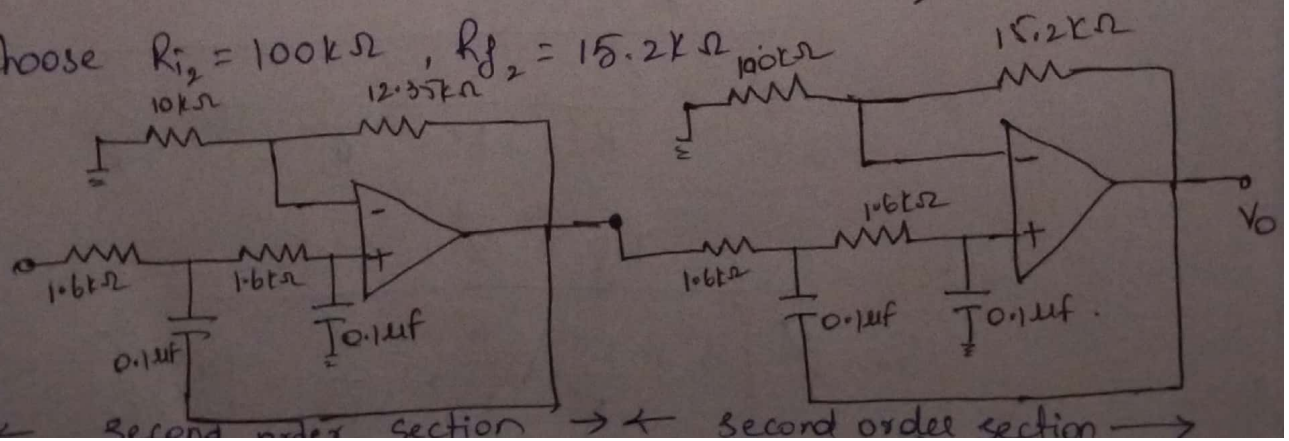 hoose Ri₂ = 100kΩ , Rf₂ = 15.2kΩ
10kΩ
12.35kΩ
100kΩ
15.2kΩ
-
+
1.6kΩ
1.6kΩ
0.1μf
0.1μf
-
+
1.6kΩ
1.6kΩ
0.1μf
0.1μf.
Vo
← second order section → ← second order section →